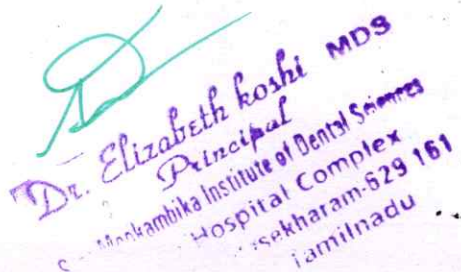 Dr. Elizabeth koshi MDS
Principal
Mookambika Institute of Dental Sciences
Hospital Complex
sekharam-629 161
Tamilnadu